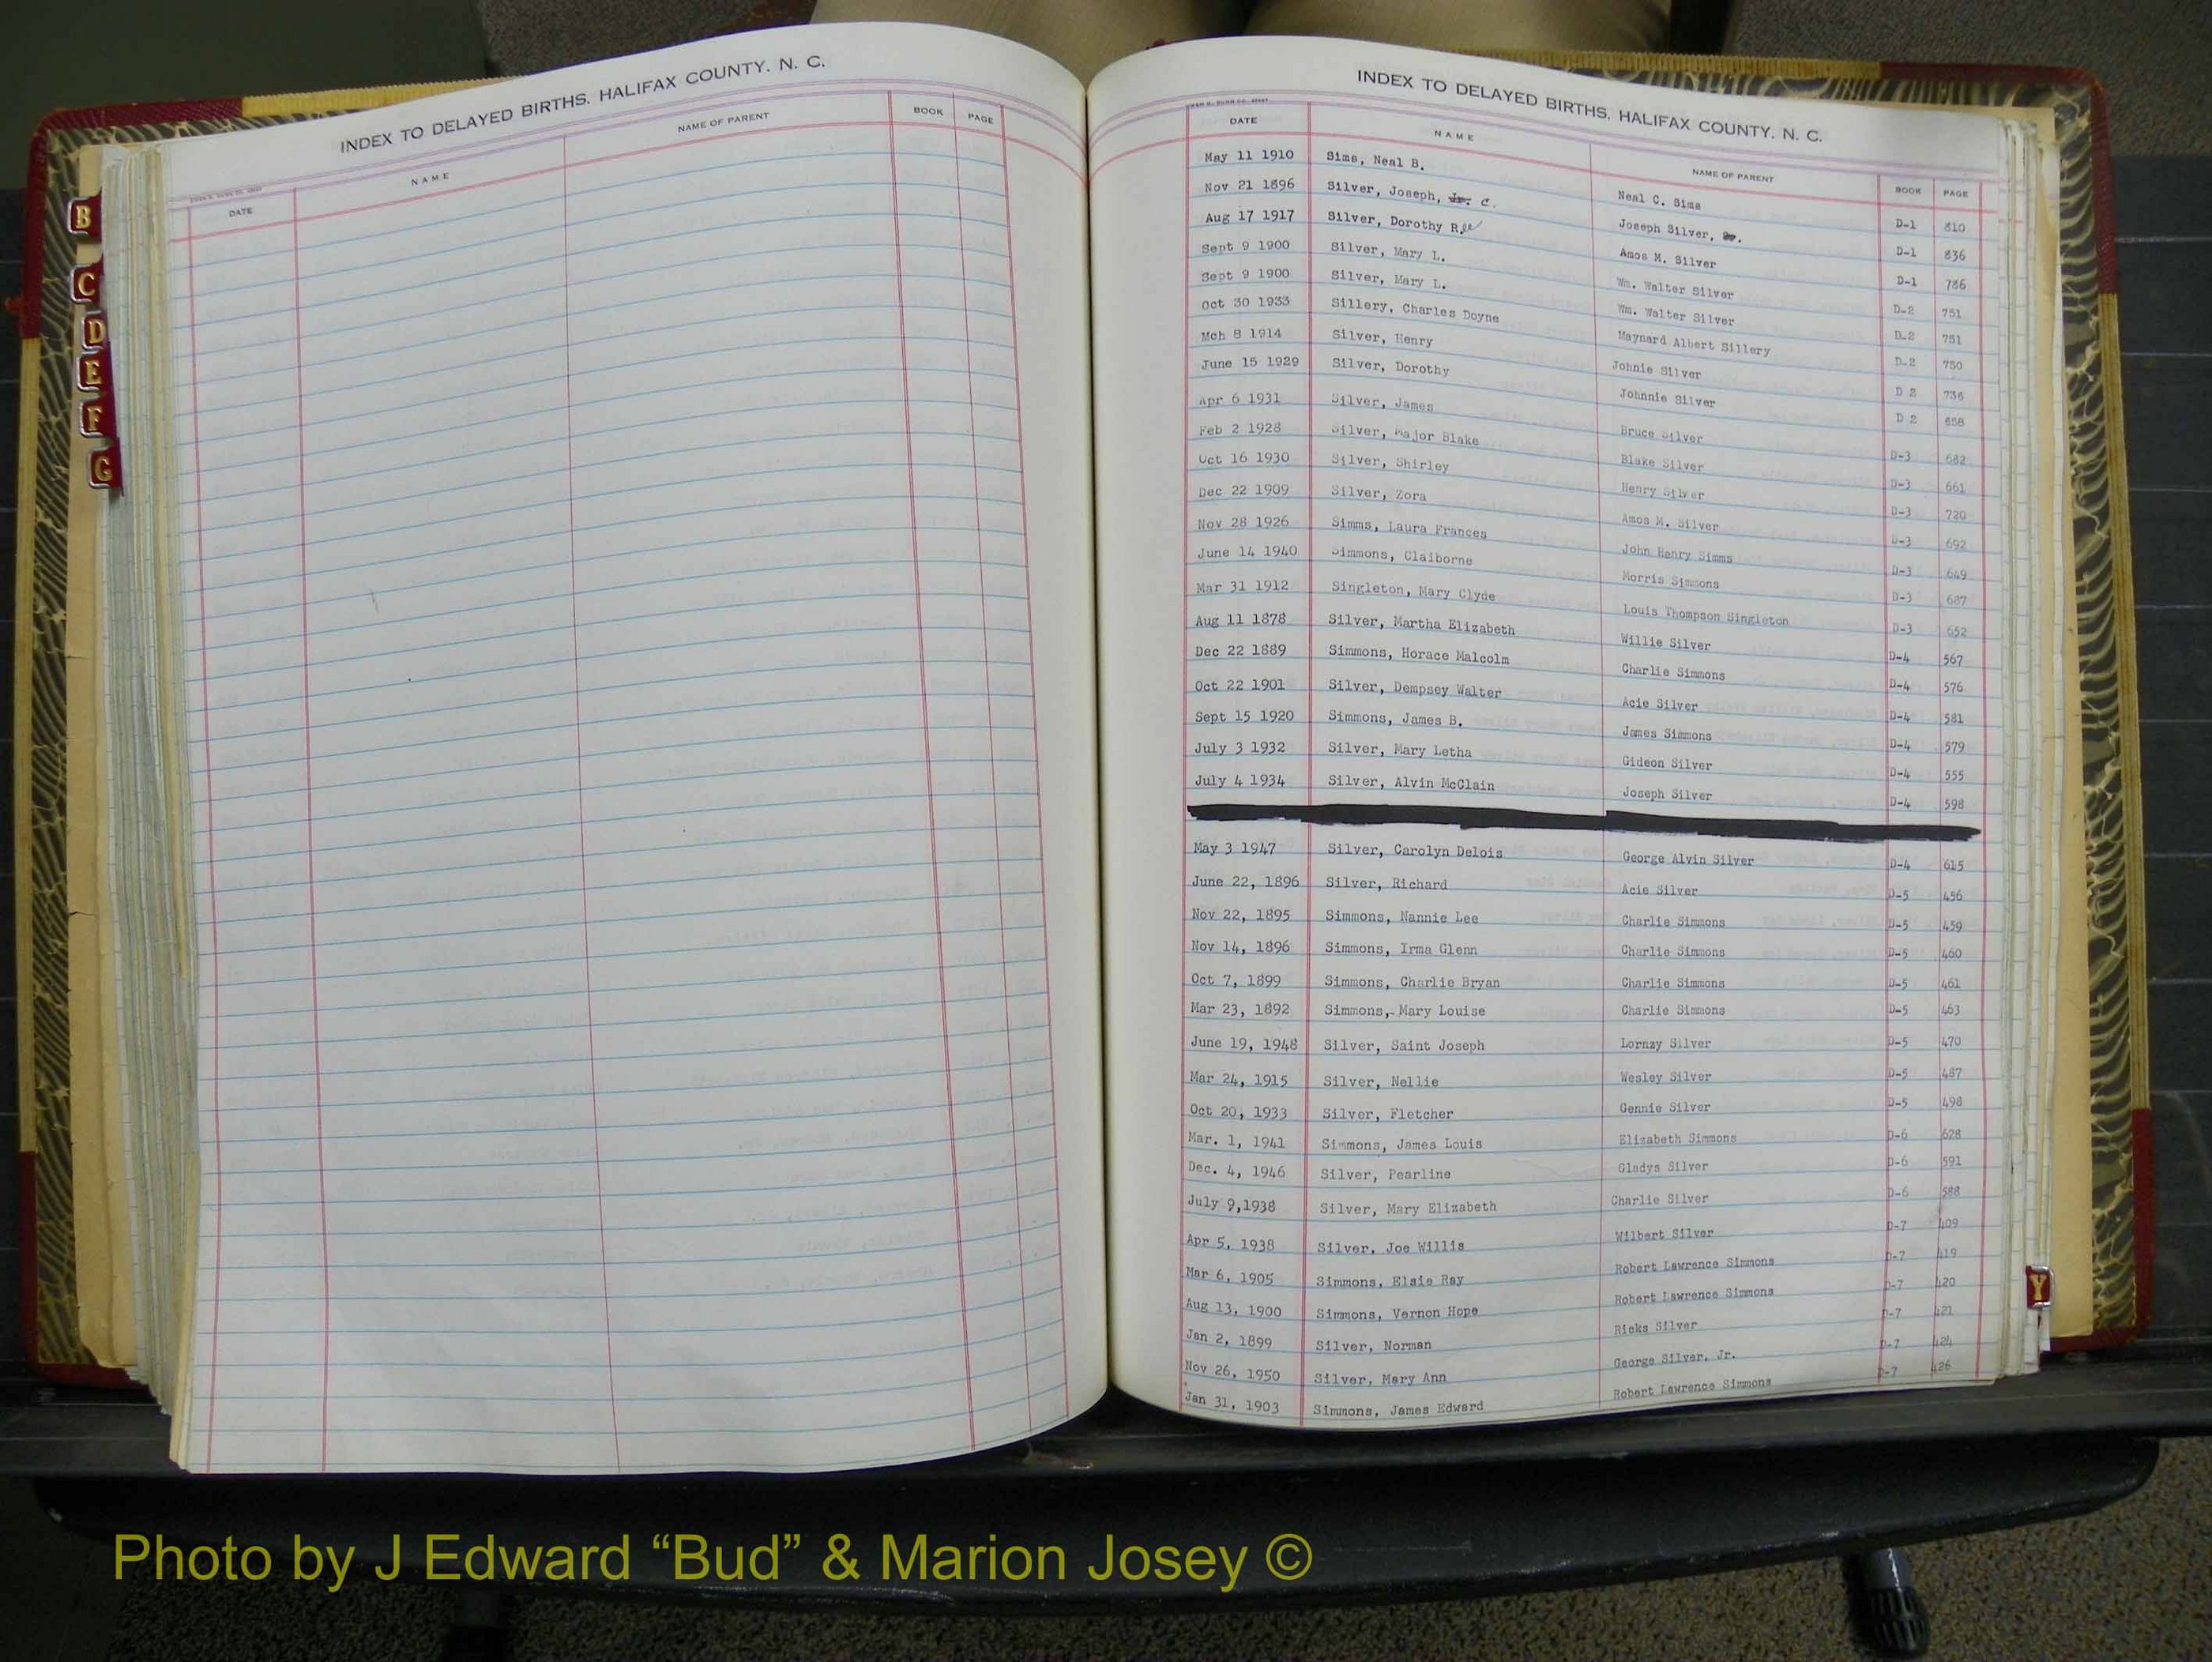 INDEX TO DELAYED BIRTHS, HALIFAX COUNTY, N. C.
DATE NAME NAME OF PARENT BOOK PAGE
B
C
D
E
F
G
INDEX TO DELAYED BIRTHS, HALIFAX COUNTY, N. C.
DATE NAME NAME OF PARENT BOOK PAGE
May 11 1910 Sims, Neal B. Neal C. Sims D-1 810
Nov 21 1896 Silver, Joseph, Jr. C. Joseph Silver, Sr. D-1 836
Aug 17 1917 Silver, Dorothy R. Amos M. Silver D-1 786
Sept 9 1900 Silver, Mary L. Wm. Walter Silver D-2 751
Sept 9 1900 Silver, Mary L. Wm. Walter Silver D-2 751
Oct 30 1933 Sillery, Charles Doyne Maynard Albert Sillery D-2 750
Mch 8 1914 Silver, Henry Johnie Silver D 2 736
June 15 1929 Silver, Dorothy Johnnie Silver D 2 658
Apr 6 1931 Silver, James Bruce Silver D-3 682
Feb 2 1928 Silver, Major Blake Blake Silver D-3 661
Oct 16 1930 Silver, Shirley Henry Silver D-3 720
Dec 22 1909 Silver, Zora Amos M. Silver D-3 692
Nov 28 1926 Simms, Laura Frances John Henry Simms D-3 649
June 14 1940 Simmons, Claiborne Morris Simmons D-3 687
Mar 31 1912 Singleton, Mary Clyde Louis Thompson Singleton D-3 652
Aug 11 1878 Silver, Martha Elizabeth Willie Silver D-4 567
Dec 22 1889 Simmons, Horace Malcolm Charlie Simmons D-4 576
Oct 22 1901 Silver, Dempsey Walter Acie Silver D-4 581
Sept 15 1920 Simmons, James B. James Simmons D-4 579
July 3 1932 Silver, Mary Letha Gideon Silver D-4 555
July 4 1934 Silver, Alvin McClain Joseph Silver D-4 598
May 3 1947 Silver, Carolyn Delois George Alvin Silver D-4 615
June 22, 1896 Silver, Richard Acie Silver D-5 456
Nov 22, 1895 Simmons, Nannie Lee Charlie Simmons D-5 459
Nov 14, 1896 Simmons, Irma Glenn Charlie Simmons D-5 460
Oct 7, 1899 Simmons, Charlie Bryan Charlie Simmons D-5 461
Mar 23, 1892 Simmons, Mary Louise Charlie Simmons D-5 463
June 19, 1948 Silver, Saint Joseph Lornzy Silver D-5 470
Mar 24, 1915 Silver, Nellie Wesley Silver D-5 487
Oct 20, 1933 Silver, Fletcher Gennie Silver D-5 498
Mar. 1, 1941 Simmons, James Louis Elizabeth Simmons D-6 628
Dec. 4, 1946 Silver, Pearline Gladys Silver D-6 591
July 9,1938 Silver, Mary Elizabeth Charlie Silver D-6 588
Apr 5, 1938 Silver, Joe Willis Wilbert Silver D-7 409
Mar 6, 1905 Simmons, Elsie Ray Robert Lawrence Simmons D-7 419
Aug 13, 1900 Simmons, Vernon Hope Robert Lawrence Simmons D-7 420
Jan 2, 1899 Silver, Norman Ricks Silver D-7 421
Nov 26, 1950 Silver, Mary Ann George Silver, Jr. D-7 424
Jan 31, 1903 Simmons, James Edward Robert Lawrence Simmons D-7 426
Y
Photo by J Edward “Bud” & Marion Josey ©